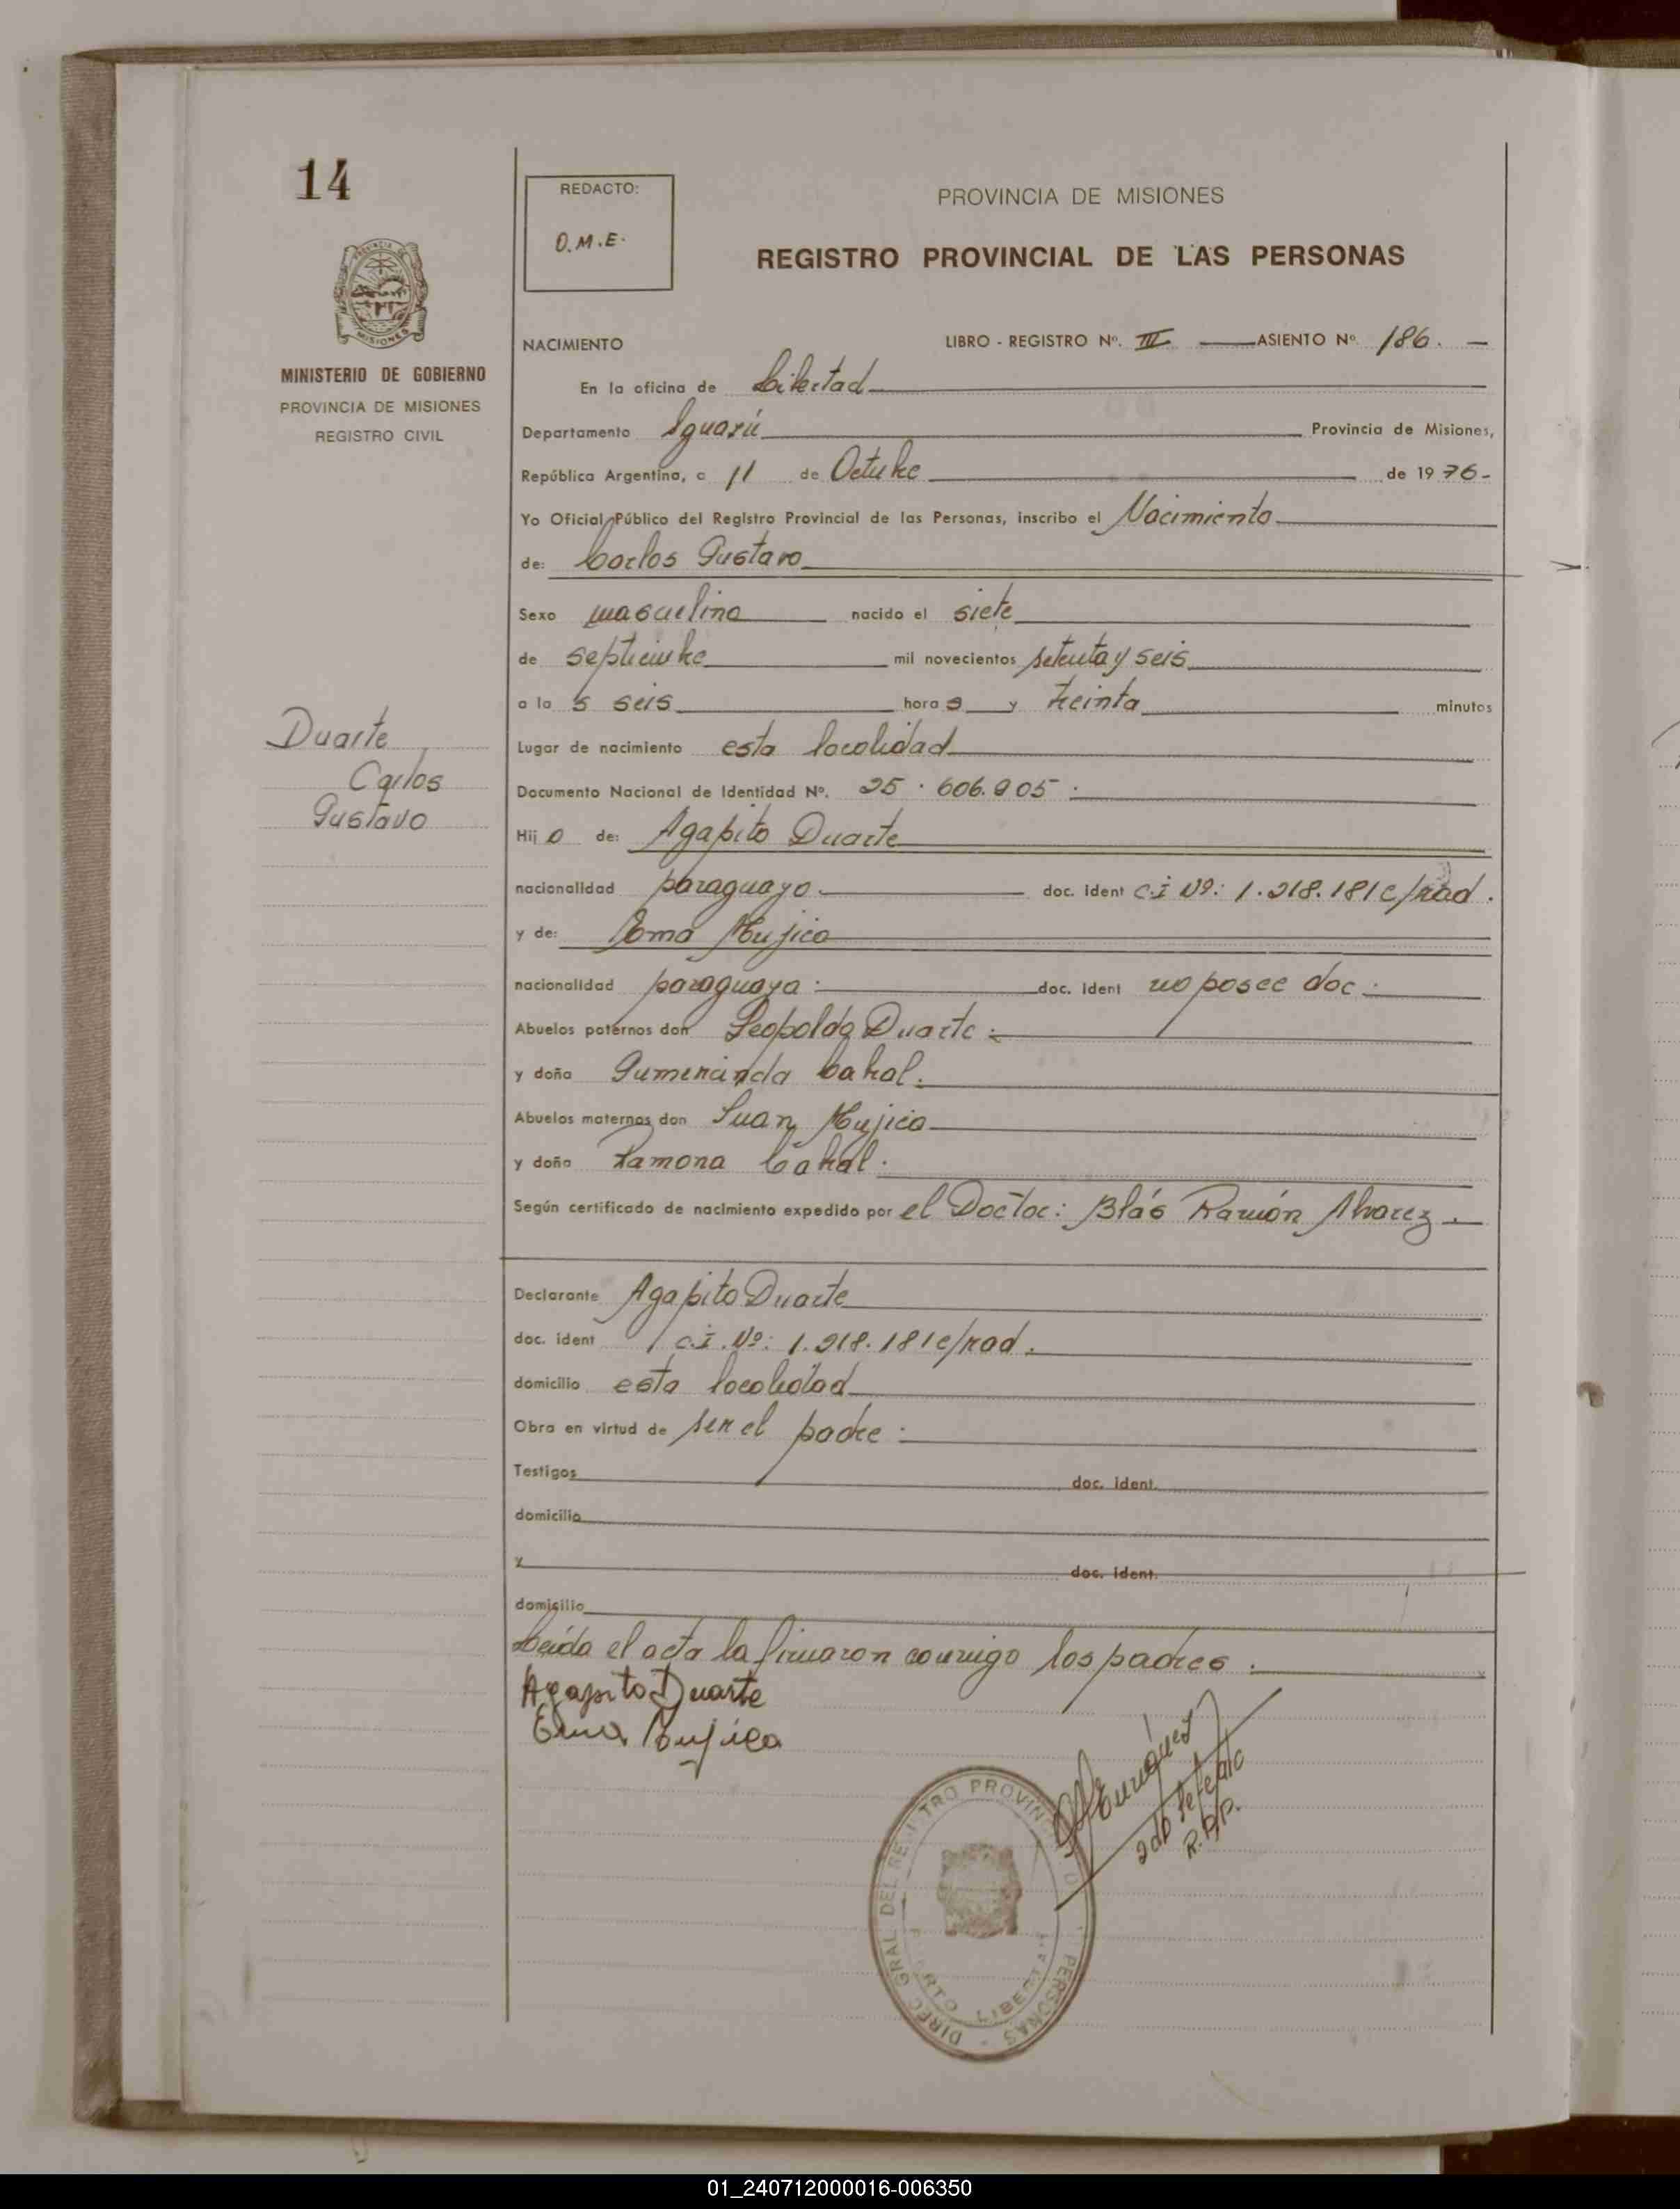 14
REDACTO:
O.M.E.
PROVINCIA DE MISIONES
REGISTRO PROVINCIAL DE LAS PERSONAS
MINISTERIO DE GOBIERNO
PROVINCIA DE MISIONES
REGISTRO CIVIL
NACIMIENTO LIBRO - REGISTRO Nº. III ASIENTO Nº 186. —
En la oficina de Libertad
Departamento Iguazú Provincia de Misiones,
República Argentina, a 11 de Octubre de 1976-
Yo Oficial Público del Registro Provincial de las Personas, inscribo el Nacimiento
de: Carlos Gustavo
Sexo masculino nacido el siete
de septiembre mil novecientos setenta y seis
a la s seis hora s y treinta minutos
Duarte
Carlos
Gustavo
Lugar de nacimiento esta localidad
Documento Nacional de Identidad Nº. 25.606.905
Hij o de: Agapito Duarte
nacionalidad paraguayo doc. ident C.I Nº: 1.218.181 c/rad.
y de: Ema Mujica
nacionalidad paraguaya doc. ident no posee doc.
Abuelos paternos don Leopoldo Duarte
y doña Gumercinda Cabral.
Abuelos maternos don Juan Mujica
y doña Ramona Cabral.
Según certificado de nacimiento expedido por el Doctor: Blás Ramón Alvarez.
Declarante Agapito Duarte
doc. ident C.I. Nº: 1.218.181 c/rad.
domicilio esta localidad
Obra en virtud de ser el padre
Testigos doc. ident.
domicilio
y doc. ident.
domicilio
Leída el acta la firmaron conmigo los padres.
Agapito Duarte
Ema Mujica
R.P.P.
DIREC. GRAL. DEL REGISTRO PROVINCIAL PERSONAS
PUERTO LIBERTAD
01_240712000016-006350